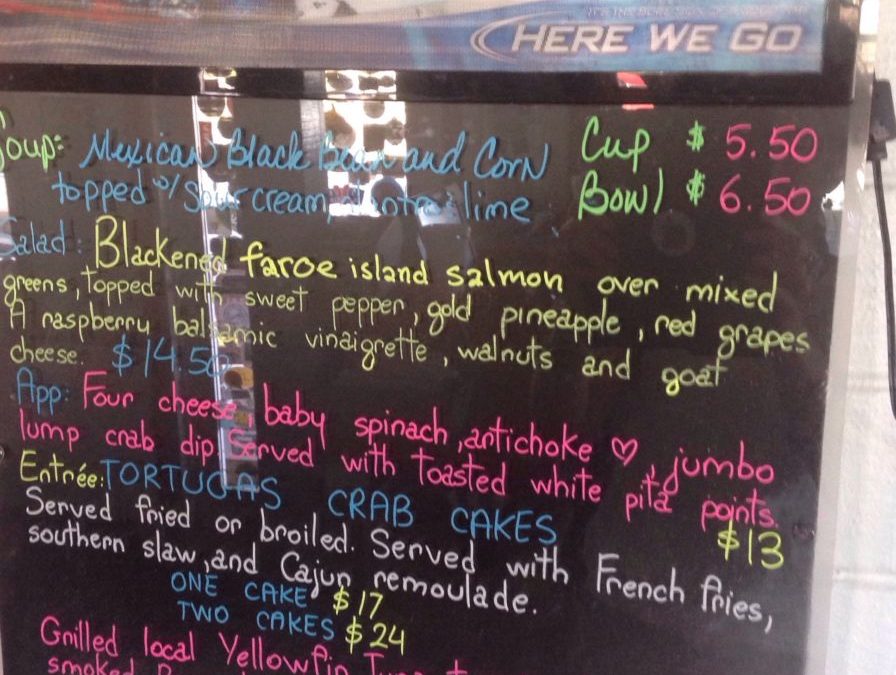 HERE WE GO
Soup: Mexican Black Bean and Corn Cup $ 5.50
topped w/ Sour cream, lime Bowl $ 6.50
Salad: Blackened faroe island salmon over mixed
greens, topped with sweet pepper, gold pineapple, red grapes
A raspberry balsamic vinaigrette, walnuts and goat
cheese. $14.50
App: Four cheese, baby spinach, antichoke ♡, jumbo
lump crab dip Served with toasted white pita points.
$13
Entrée: TORTUGAS CRAB CAKES
Served fried or broiled. Served with French fries,
southern slaw, and Cajun remoulade.
ONE CAKE $17
TWO CAKES $24
Grilled local Yellowfin Tuna
smoked